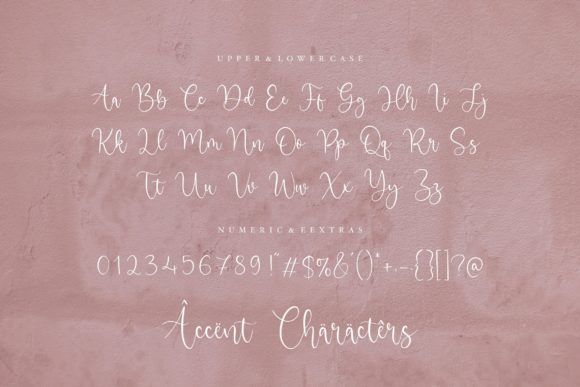 UPPER & LOWERCASE
Aa Bb Cc Dd Ee Ff Gg Hh Ii Jj
Kk Ll Mm Nn Oo Pp Qq Rr Ss
Tt Uu Vv Ww Xx Yy Zz
NUMERIC & EEXTRAS
0123456789!"#$%&'()*+,-.{}[]?@
Âccënt Chäräctêrs